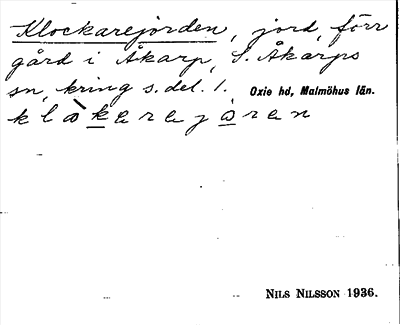 Klockarejorden, jord, förr
gård i Åkarp, S. Åkarps
sn, kring s. del. 1. Oxie hd, Malmöhus län.
klo`karejoren
NILS NILSSON 1936.